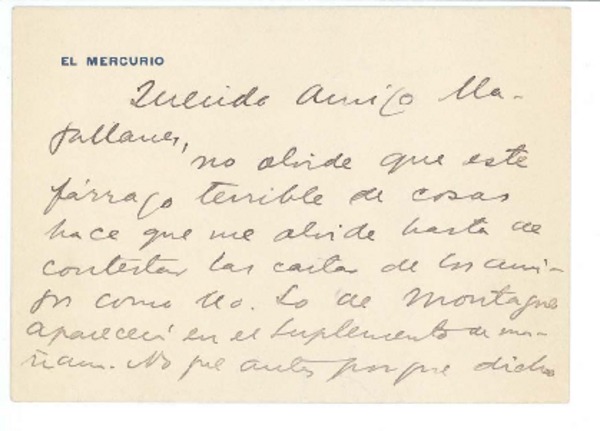 EL MERCURIO
Querido Amigo Ma-
gallanes,
no olvide que este
fárrago terrible de cosas
hace que me olvide hasta de
contestar las cartas de los ami-
gos como Ud. Lo de Montagne
aparecerá en el Suplemento de ma-
ñana. No fue antes porque dicho